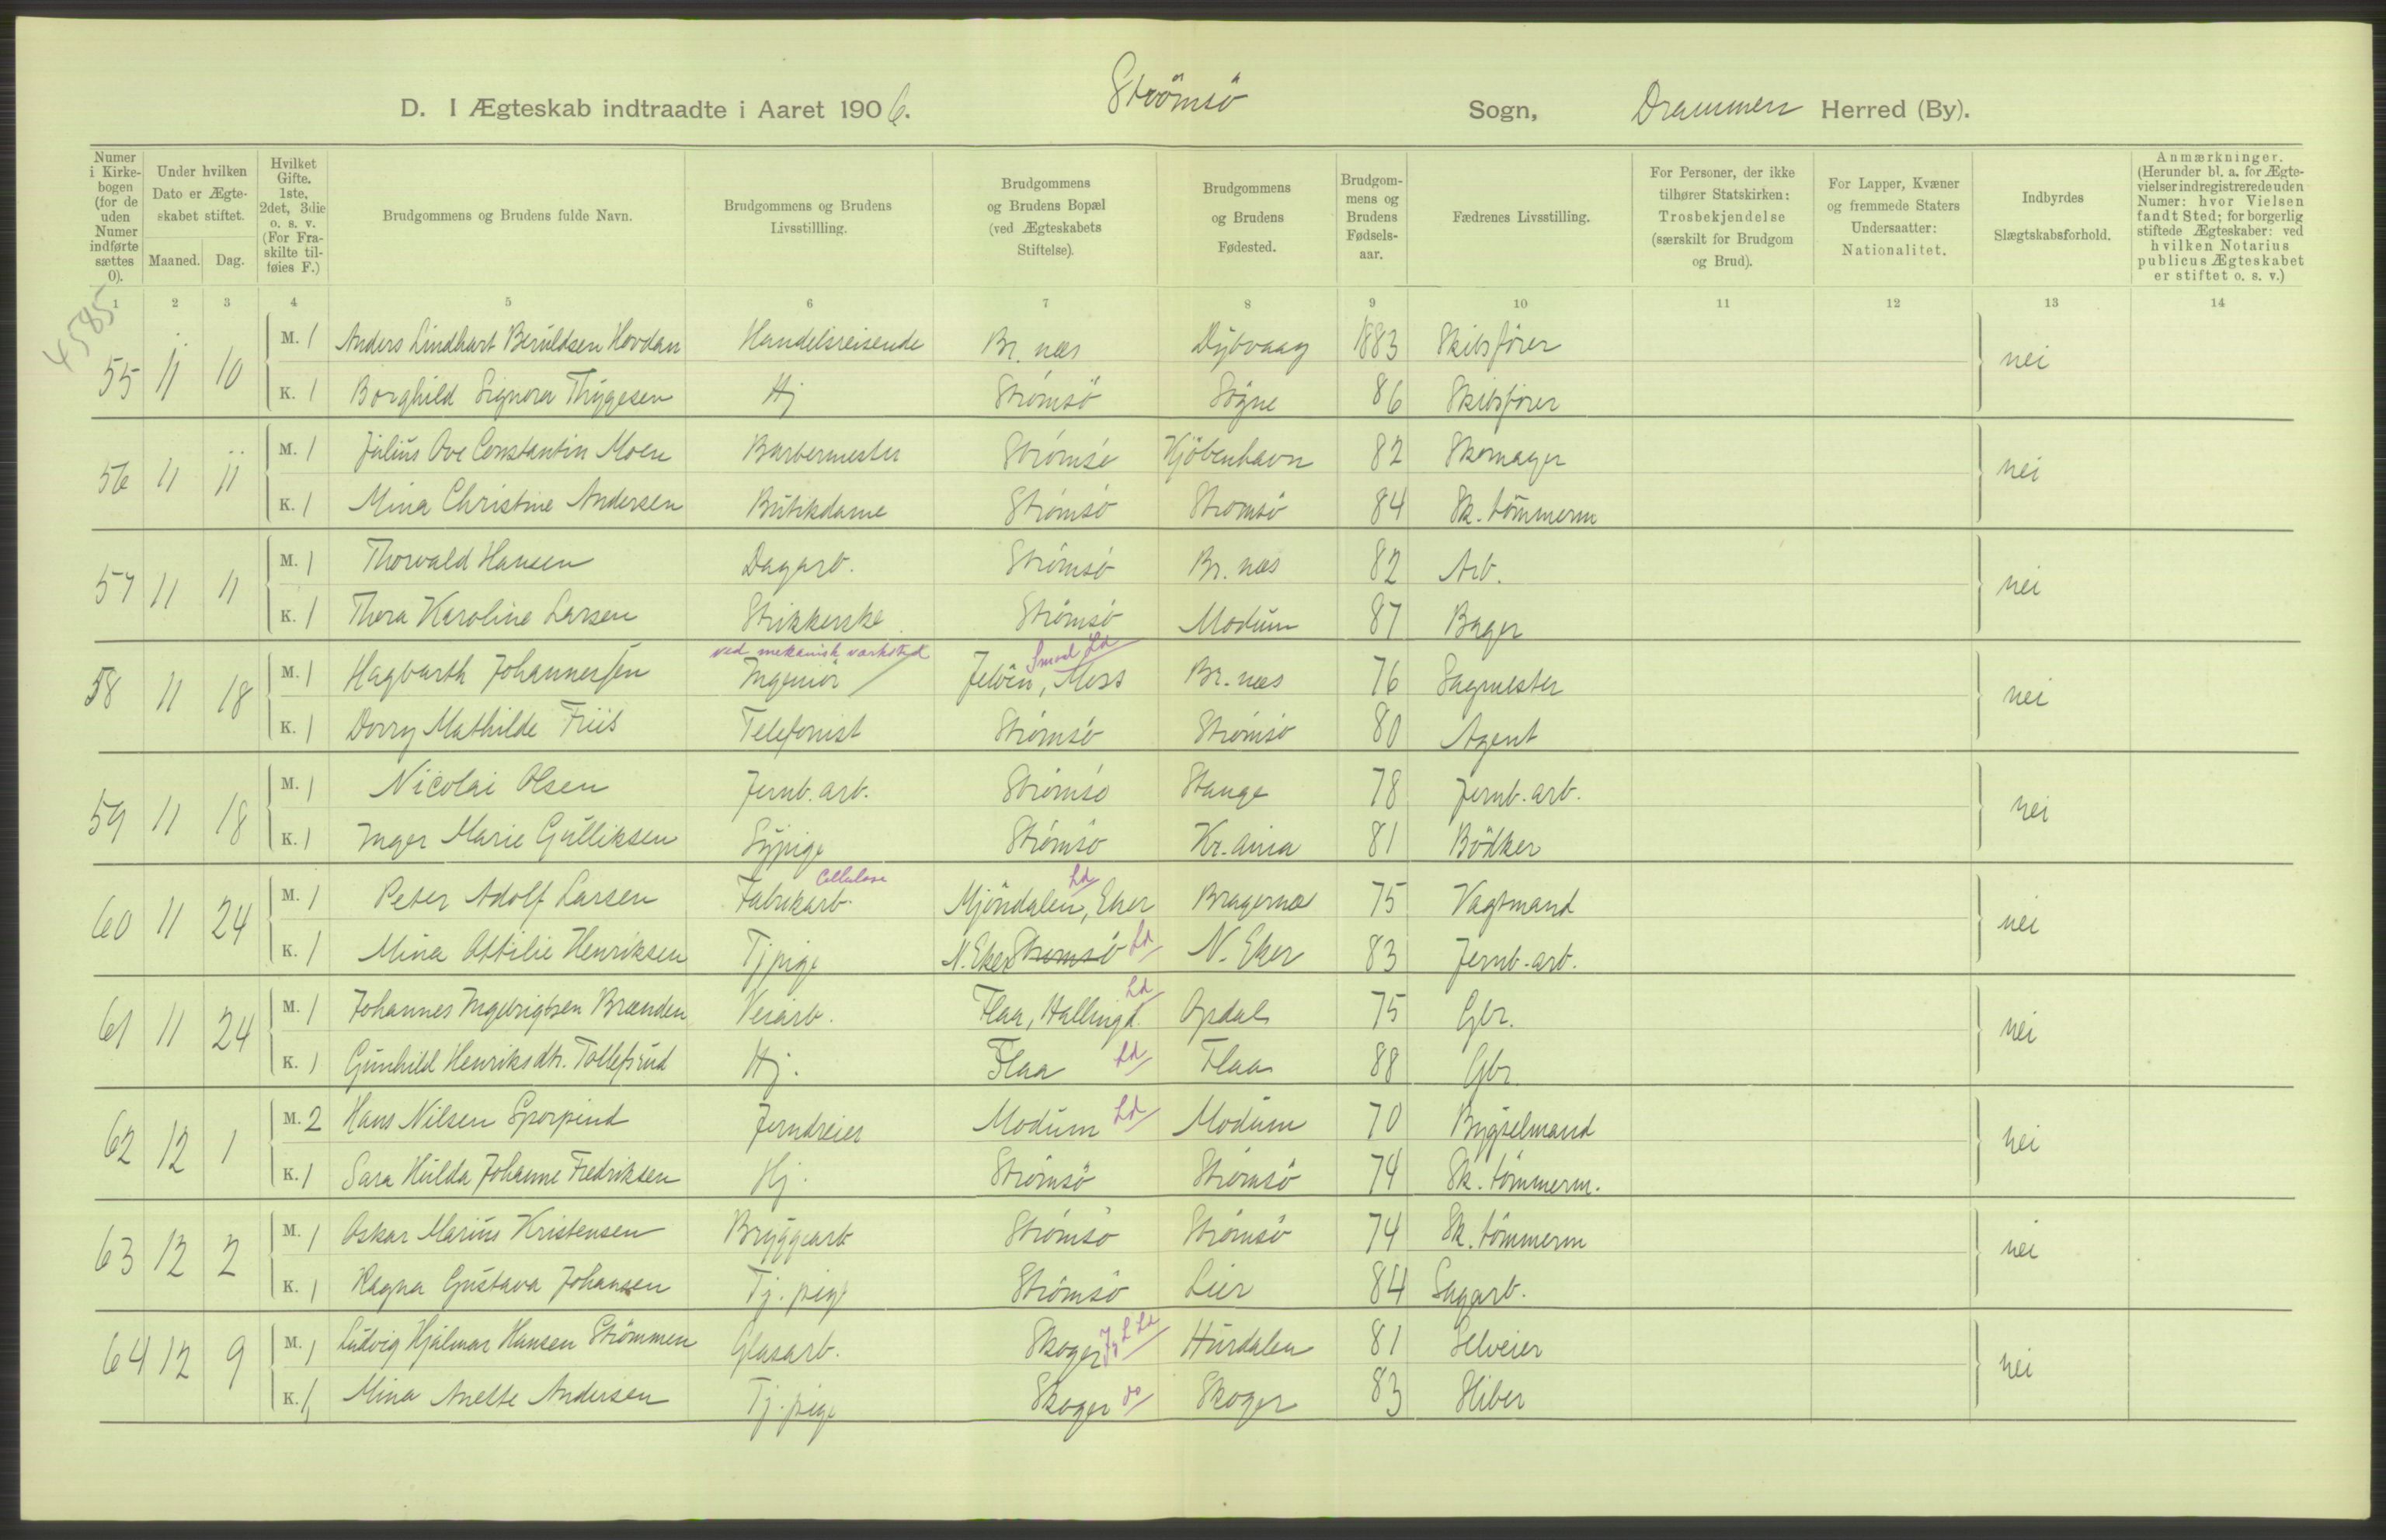 D. I Ægteskab indtraadte i Aaret 1906. Strömsö Sogn, Drammen Herred (By).
Numer i Kirkebogen (for de uden Numer indførte sættes 0).
Under hvilken Dato er Ægteskabet stiftet. Maaned. Dag.
Hvilket Gifte. 1ste, 2det, 3die o. s. v. (For Fraskilte tilføies F.)
Brudgommens og Brudens fulde Navn.
Brudgommens og Brudens Livsstillling.
Brudgommens og Brudens Bopæl (ved Ægteskabets Stiftelse).
Brudgommens og Brudens Fødested.
Brudgommens og Brudens Fødselsaar.
Fædrenes Livsstilling.
For Personer, der ikke tilhører Statskirken: Trosbekjendelse (særskilt for Brudgom og Brud).
For Lapper, Kvæner og fremmede Staters Undersaatter: Nationalitet.
Indbyrdes Slægtskabsforhold.
Anmærkninger. (Herunder bl. a. for Ægtevielser indregistrerede uden Numer: hvor Vielsen fandt Sted; for borgerlig stiftede Ægteskaber: ved hvilken Notarius publicus Ægteskabet er stiftet o. s. v.)
1 2 3 4 5 6 7 8 9 10 11 12 13 14
4585
55 11 10 M. 1 Anders Lindhart Beruldsen Hovdan Handelsreisende Br. næs Dybvaag 1883 Skibsfører nei
K. 1 Borghild Signora Thygesen Hj Strömsö Sögne 86 Skibsfører
56 11 11 M. 1 Julius Ove Constantin Moen Barbermester Strömsö Kjöbenhavn 82 Skomager nei
K. 1 Mina Christine Andersen Butikdame Strömsö Strömsö 84 Sk. tömmerm
57 11 11 M. 1 Thorvald Hansen Dagarb. Strömsö Br. næs 82 Arb. nei
K. 1 Thora Karoline Larsen Strikkerske Strömsö Modum 87 Bager
ved mekanisk værksted Smed Ld
58 11 18 M. 1 Hagbarth Johannessen Ingeniör Jelöen, Moss Br. næs 76 Sagmester nei
K. 1 Dorry Mathilde Friis Telefonist Strömsö Strömsö 80 Agent
59 11 18 M. 1 Nicolai Olsen Jernb. arb. Strömsö Stange 78 Jernb. arb. nei
K. 1 Inger Marie Gulliksen Sypige Strömsö Kr. ania 81 Bödker
Cellulose Ld
60 11 24 M. 1 Peter Adolf Larsen Fabrikarb. Mjöndalen, Eker Bragernæs 75 Vagtmand nei
K. 1 Mina Ottilie Henriksen Tjpige N. Eker Strömsö Ld N. Eker 83 Jernb. arb.
61 11 24 M. 1 Johannes Ingebrigtsen Brænden Veiarb. Flaa, Hallingd. Ld Opdal 75 Gbr. nei
K. 1 Gunhild Henriksdtr. Tollefsrud Hj. Flaa Ld Flaa 88 Gbr
62 12 1 M. 2 Hans Nilsen Sporpind Jerndreier Modum Ld Modum 70 Bygselmand nei
K. 1 Sara Hulda Johanne Fredriksen Hj. Strömsö Strömsö 74 Sk. tömmerm.
63 12 2 M. 1 Oskar Marius Kristensen Bryggearb Strömsö Strömsö 74 Sk. tömmerm nei
K. 1 Ragna Gustava Johansen Tj. pige Strömsö Lier 84 Sagarb.
64 12 9 M. 1 Ludvig Hjalmar Hansen Strömmen Glasarb. Skoger Hurdalen 81 Selveier nei
K. 1 Mina Anette Andersen Tj. pige Skoger do Skoger 83 Sliber